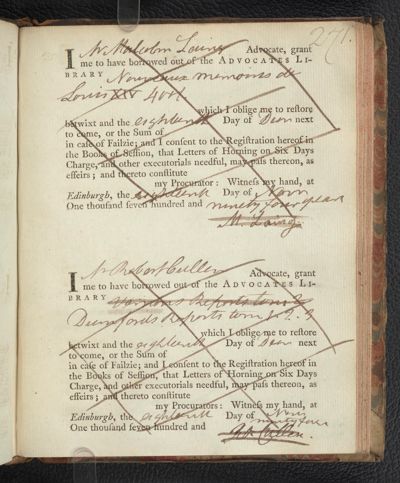 271.
I Mr Malcolm Laing Advocate, grant
me to have borrowed out of the ADVOCATES LI-
BRARY Nouveaux memoirs de
Louis XIV 4 Vol
which I oblige me to restore
betwixt and the eighteenth Day of Decr next
to come, or the Sum of
in case of Failzie; and I consent to the Registration hereof in
the Books of Session, that Letters of Horning on Six Days
Charge, and other executorials needful, may pass thereon, as
effeirs; and thereto constitute
my Procurator: Witness my hand, at
Edinburgh, the eighteenth Day of Novr
One thousand seven hundred and ninety four years
M. Laing
I Mr Robert Cullen Advocate, grant
me to have borrowed out of the ADVOCATES LI-
BRARY Reports
Durnfords Reports
which I oblige me to restore
betwixt and the eighteenth Day of Decr next
to come, or the Sum of
in case of Failzie; and I consent to the Registration hereof in
the Books of Session, that Letters of Horning on Six Days
Charge, and other executorials needful, may pass thereon, as
effeirs; and thereto constitute
my Procurators: Witness my hand, at
Edinburgh, the eighteenth Day of Novr
One thousand seven hundred and ninety four
Cullen.